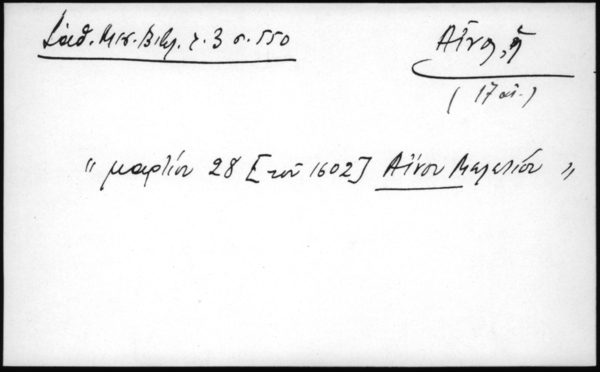 Σάθ. Μεσ. Βιβλ. τ. 3 σ. 550
Αἶνος, ἡ
(17 αἰ.)
" μαρτίου 28 [τοῦ 1602] Αἴνου Μελετίου "